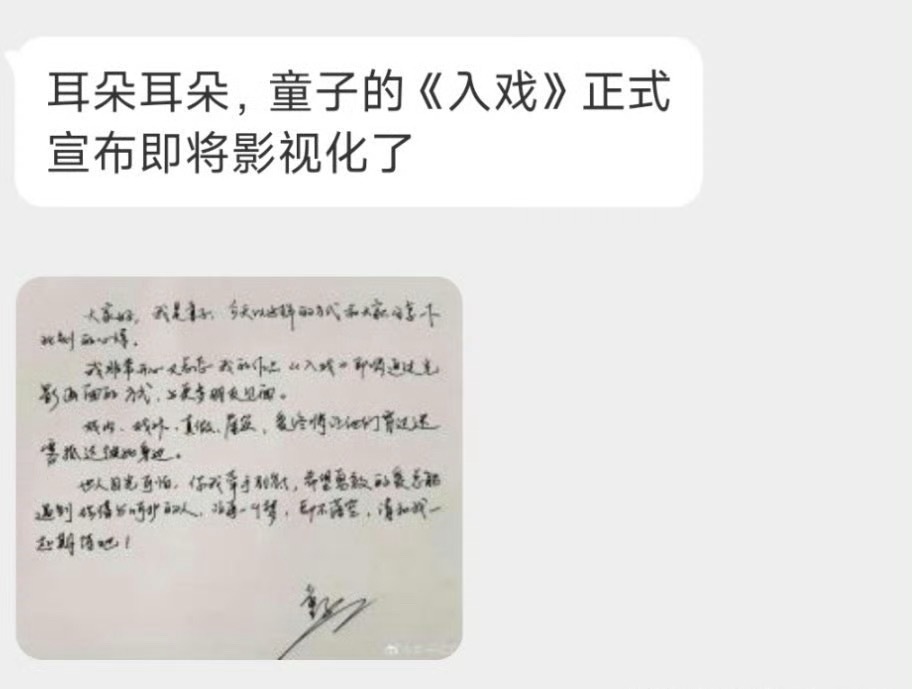 耳朵耳朵，童子的《入戏》正式
宣布即将影视化了
大家好，我是童子，今天以这样的方式和大家分享一下
此刻的心情。
我非常开心又忐忑 我的作品《入戏》即将通过光
影画面的方式，与更多朋友见面。
戏内、戏外、真假、虚实，爱终将让他们穿过迷
雾抵达彼此身边。
世人目光可怕，你我牵手别放，希望勇敢的爱总能
遇到值得与呵护的人，
一个梦，都不落空，请和我一
起期待吧！
童子